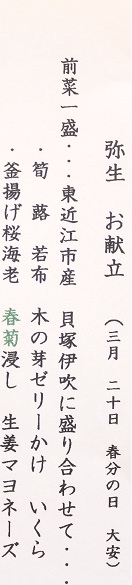 弥生　お献立　（三月　二十日　春分の日　大安）
前菜一盛・・・東近江市産　貝塚伊吹に盛り合わせて・・・
・筍　蕗　若布　木の芽ゼリーかけ　いくら
・釜揚げ桜海老　春菊浸し　生姜マヨネーズ